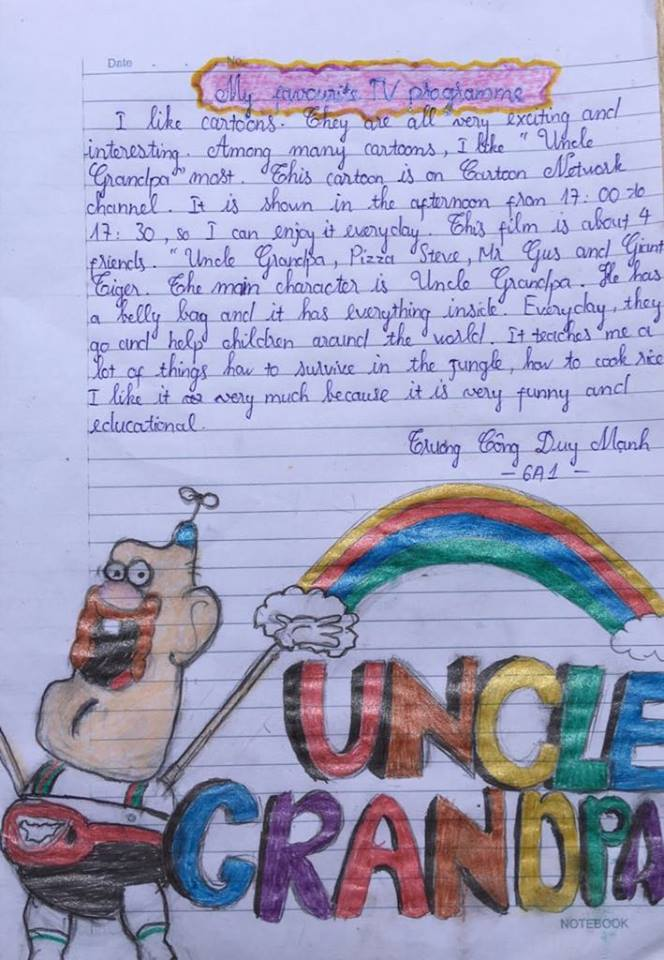 Date . . No.
My favourite TV programme
I like cartoons. They are all very exciting and
interesting. Among many cartoons, I like "Uncle
Grandpa" most. This cartoon is on Cartoon Network
channel. It is shown in the afternoon from 17:00 to
17:30, so I can enjoy it everyday. This film is about 4
friends. "Uncle Grandpa, Pizza Steve, Mr Gus and Giant
Tiger. The main character is Uncle Grandpa. He has
a belly bag and it has everything inside. Everyday, they
go and help children around the world. It teaches me a
lot of things how to survive in the jungle, how to cook rice
I like it very much because it is very funny and
educational.
Trương Công Duy Mạnh
- 6A1 -
UNCLE
GRANDPA
NOTEBOOK